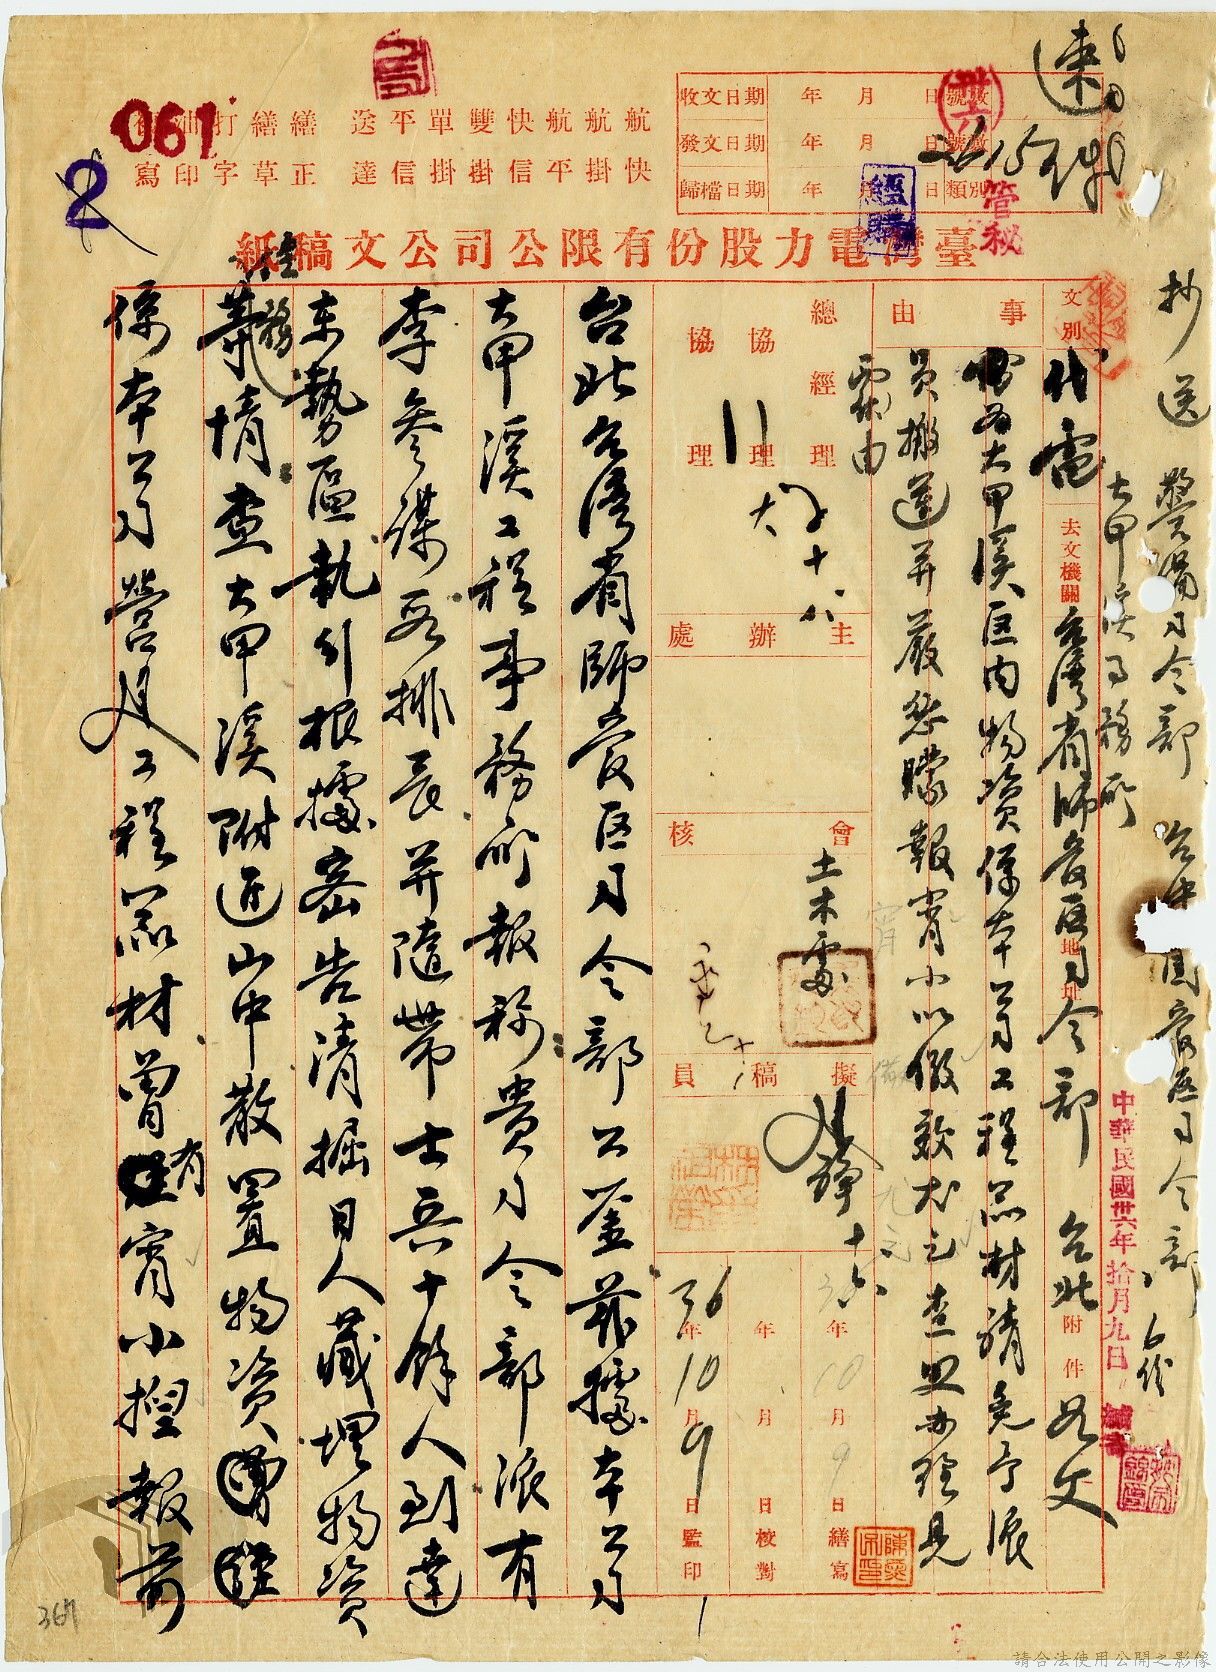 速
抄送 警備司令部 台中團管區司令部 6份
大甲溪事務所
中華民國卅六年拾月九日
收文日期 年 月 日 收號
發文日期 年 月 日 發號
歸檔日期 年 月 日 類別
管秘
經購
航航航快雙單平送
快掛平信掛掛信達
繕繕打油
正草字印寫
061
2
臺灣電力股份有限公司文稿紙
文別 代電 去文機關 台灣省師管區司令部 地址 台北 附件 如文
事由
電為大甲溪区內物資係本公司工程器材請免予派
員搬運并嚴懲矇報宵小以儆效尤乞查照辦理見
覆由
總經理
協理
協理
主辦處
會核
土木處
擬稿員
十六
年 月 日 繕寫
年 月 日 校對
36年10月9日 監印
台北台灣省師管区司令部公鉴茲據本公司
大甲溪工程事務所報稱貴司令部派有
李參謀 排長并隨帶士兵十餘人到達
東勢區執行根據密告清掘日人藏埋物資
等情查大甲溪附近山中散置物資
係本公司營建工程器材曾有宵小捏報前
367
請合法使用公開之影像